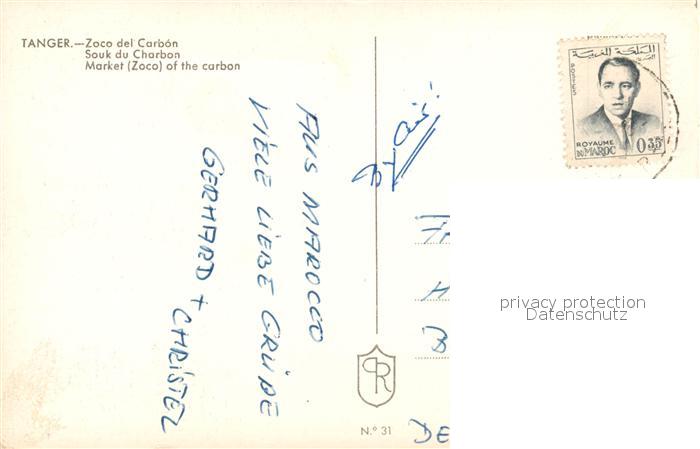 TANGER.—Zoco del Carbón
Souk du Charbon
Market (Zoco) of the carbon
AUS MAROCCO
VIELE LIEBE GRÜßE
GERHARD + CHRISTEL
المملكة المغربية
POSTES
ROYAUME
DU MAROC
0.35
privacy protection
Datenschutz
PR
N.º 31
DE